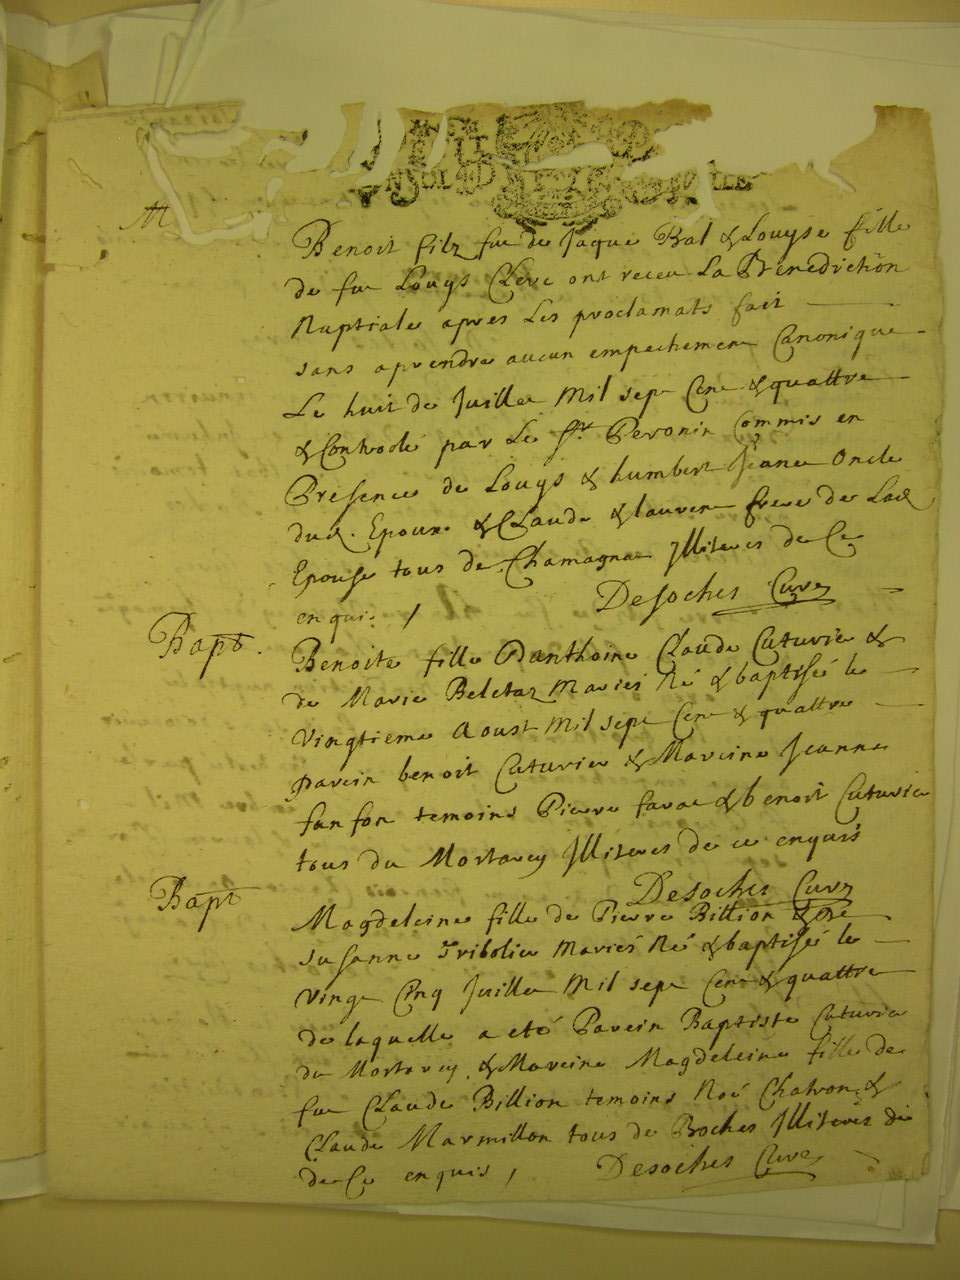 M
Benoit filz feu de Jaque Bal & Louyse fille
de feu Louys Clerc ont receu La Benediction
Nuptiale apres Les proclamats fait
sans aprendre aucun empechement Canonique
Le huit de Juillet Mil sept Cent & quattre
& Controolé par Le Sr. Peronin Commis en
Presence de Louys & humbert Jeane Oncle
dud. Epoux & Claude & laurent frere de Lad
Epouse tous de Chamagnae Illiteres de Ce
enquis /
Desoches Curé
Bapt.
Benoite fille Danthoine Claude Cuturie &
de Marie Beletaz Mariés Né & baptisé le
Vingtieme Aoust Mil sept Cent & quattre
parein benoit Cuturier & Mareine Jeanne
fanfon temoins Pierre favae & benoit Cuturie
tous du Mortarey Illiteres de ce enquis
Desoches Curé
Bapt
Magdeleine fille de Pierre Billion & de
Susanne Tribolie Mariés Né & baptisé le
Vingt Cinq Juillet Mil sept Cent & quattre
de laquelle a eté Parein Baptiste Cuturie
du Mortarey & Mareine Magdeleine fille de
feu Claude Billion temoins Noé Chatron &
Claude Marmillon tous de Boches Illiterés de
de Ce enquis / Desoches Curé